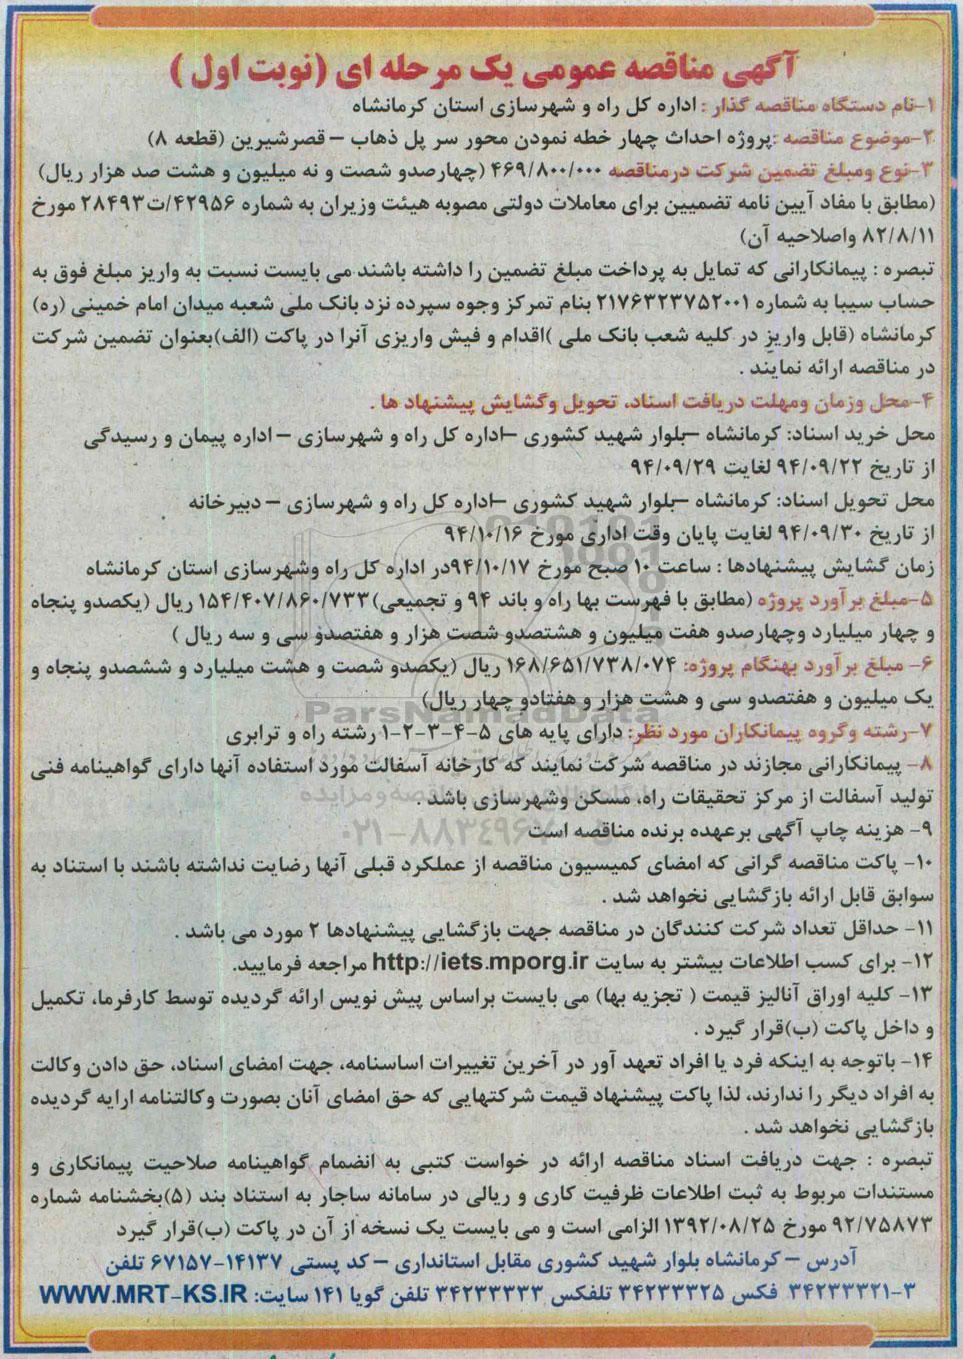 آگهی مناقصه عمومی یک مرحله ای (نوبت اول )
۱-نام دستگاه مناقصه گذار : اداره کل راه و شهرسازی استان کرمانشاه
۲-موضوع مناقصه :پروژه احداث چهار خطه نمودن محور سر پل ذهاب – قصرشیرین (قطعه ۸)
۳-نوع ومبلغ تضمین شرکت درمناقصه ۴۶۹/۸۰۰/۰۰۰ (چهارصدو شصت و نه میلیون و هشت صد هزار ریال)
(مطابق با مفاد آیین نامه تضمیین برای معاملات دولتی مصوبه هیئت وزیران به شماره ۴۲۹۵۶/ت۲۸۴۹۳ مورخ
۸۲/۸/۱۱ واصلاحیه آن)
تبصره : پیمانکارانی که تمایل به پرداخت مبلغ تضمین را داشته باشند می بایست نسبت به واریز مبلغ فوق به
حساب سیبا به شماره ۲۱۷۶۳۲۳۷۵۲۰۰۱ بنام تمرکز وجوه سپرده نزد بانک ملی شعبه میدان امام خمینی (ره)
کرمانشاه (قابل واریز در کلیه شعب بانک ملی )اقدام و فیش واریزی آنرا در پاکت (الف)بعنوان تضمین شرکت
در مناقصه ارائه نمایند .
۴-محل وزمان ومهلت دریافت اسناد، تحویل وگشایش پیشنهاد ها .
محل خرید اسناد: کرمانشاه –بلوار شهید کشوری –اداره کل راه و شهرسازی – اداره پیمان و رسیدگی
از تاریخ ۹۴/۰۹/۲۲ لغایت ۹۴/۰۹/۲۹
محل تحویل اسناد: کرمانشاه –بلوار شهید کشوری –اداره کل راه و شهرسازی – دبیرخانه
از تاریخ ۹۴/۰۹/۳۰ لغایت پایان وقت اداری مورخ ۹۴/۱۰/۱۶
زمان گشایش پیشنهادها : ساعت ۱۰ صبح مورخ ۹۴/۱۰/۱۷در اداره کل راه وشهرسازی استان کرمانشاه
۵-مبلغ برآورد پروژه (مطابق با فهرست بها راه و باند ۹۴ و تجمیعی)۱۵۴/۴۰۷/۸۶۰/۷۳۳ ریال (یکصدو پنجاه
و چهار میلیارد وچهارصدو هفت میلیون و هشتصدو شصت هزار و هفتصدو سی و سه ریال )
۶- مبلغ برآورد بهنگام پروژه: ۱۶۸/۶۵۱/۷۳۸/۰۷۴ ریال (یکصدو شصت و هشت میلیارد و ششصدو پنجاه و
یک میلیون و هفتصدو سی و هشت هزار و هفتادو چهار ریال)
۷-رشته وگروه پیمانکاران مورد نظر: دارای پایه های ۵-۴-۳-۲-۱ رشته راه و ترابری
۸- پیمانکارانی مجازند در مناقصه شرکت نمایند که کارخانه آسفالت مورد استفاده آنها دارای گواهینامه فنی
تولید آسفالت از مرکز تحقیقات راه، مسکن وشهرسازی باشد .
۹- هزینه چاپ آگهی برعهده برنده مناقصه است
۱۰- پاکت مناقصه گرانی که امضای کمیسیون مناقصه از عملکرد قبلی آنها رضایت نداشته باشند با استناد به
سوابق قابل ارائه بازگشایی نخواهد شد .
۱۱- حداقل تعداد شرکت کنندگان در مناقصه جهت بازگشایی پیشنهادها ۲ مورد می باشد .
۱۲- برای کسب اطلاعات بیشتر به سایت http://iets.mporg.ir مراجعه فرمایید.
۱۳- کلیه اوراق آنالیز قیمت ( تجزیه بها) می بایست براساس پیش نویس ارائه گردیده توسط کارفرما، تکمیل
و داخل پاکت (ب)قرار گیرد .
۱۴- باتوجه به اینکه فرد یا افراد تعهد آور در آخرین تغییرات اساسنامه، جهت امضای اسناد، حق دادن وکالت
به افراد دیگر را ندارند، لذا پاکت پیشنهاد قیمت شرکتهایی که حق امضای آنان بصورت وکالتنامه ارایه گردیده
بازگشایی نخواهد شد .
تبصره : جهت دریافت اسناد مناقصه ارائه در خواست کتبی به انضمام گواهینامه صلاحیت پیمانکاری و
مستندات مربوط به ثبت اطلاعات ظرفیت کاری و ریالی در سامانه ساجار به استناد بند (۵)بخشنامه شماره
۹۲/۷۵۸۷۳ مورخ ۱۳۹۲/۰۸/۲۵ الزامی است و می بایست یک نسخه از آن در پاکت (ب)قرار گیرد
آدرس – کرمانشاه بلوار شهید کشوری مقابل استانداری – کد پستی ۱۴۱۳۷-۶۷۱۵۷ تلفن
۳-۳۴۲۳۳۳۲۱ فکس ۳۴۲۳۳۳۲۵ تلفکس ۳۴۲۳۳۳۳۳ تلفن گویا ۱۴۱ سایت: WWW.MRT-KS.IR
ParsNamadData
۰۲۱-۸۸۳۴۹۶۷۰